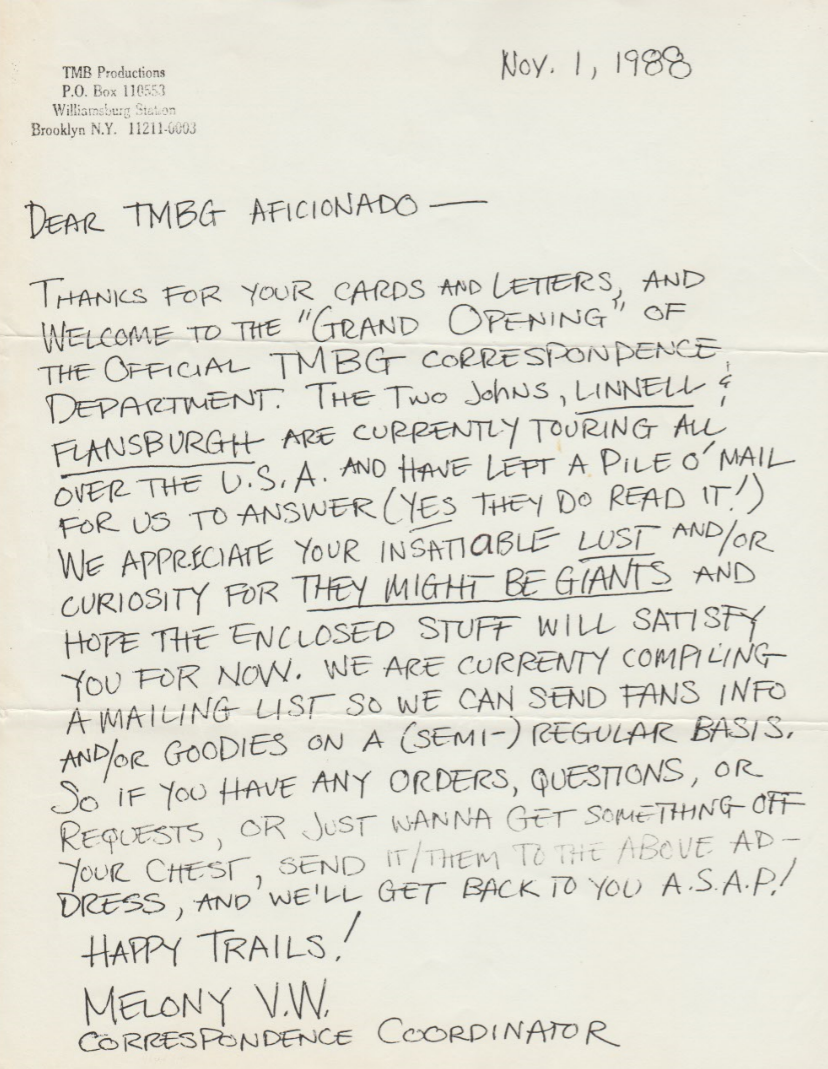 Nov. 1, 1988
TMB Productions
P.O. Box 110553
Williamsburg Station
Brooklyn N.Y. 11211-0003
DEAR TMBG AFICIONADO —
THANKS FOR YOUR CARDS AND LETTERS, AND
WELCOME TO THE "GRAND OPENING" OF
THE OFFICIAL TMBG CORRESPONDENCE
DEPARTMENT. THE TWO JOHNS, LINNELL &
FLANSBURGH ARE CURRENTLY TOURING ALL
OVER THE U.S.A. AND HAVE LEFT A PILE O' MAIL
FOR US TO ANSWER (YES THEY DO READ IT!)
WE APPRECIATE YOUR INSATIABLE LUST AND/OR
CURIOSITY FOR THEY MIGHT BE GIANTS AND
HOPE THE ENCLOSED STUFF WILL SATISFY
YOU FOR NOW. WE ARE CURRENTY COMPILING
A MAILING LIST SO WE CAN SEND FANS INFO
AND/OR GOODIES ON A (SEMI-) REGULAR BASIS.
SO IF YOU HAVE ANY ORDERS, QUESTIONS, OR
REQUESTS, OR JUST WANNA GET SOMETHING OFF
YOUR CHEST, SEND IT/THEM TO THE ABOVE AD-
DRESS, AND WE'LL GET BACK TO YOU A.S.A.P.!
HAPPY TRAILS!
MELONY V.W.
CORRESPONDENCE COORDINATOR